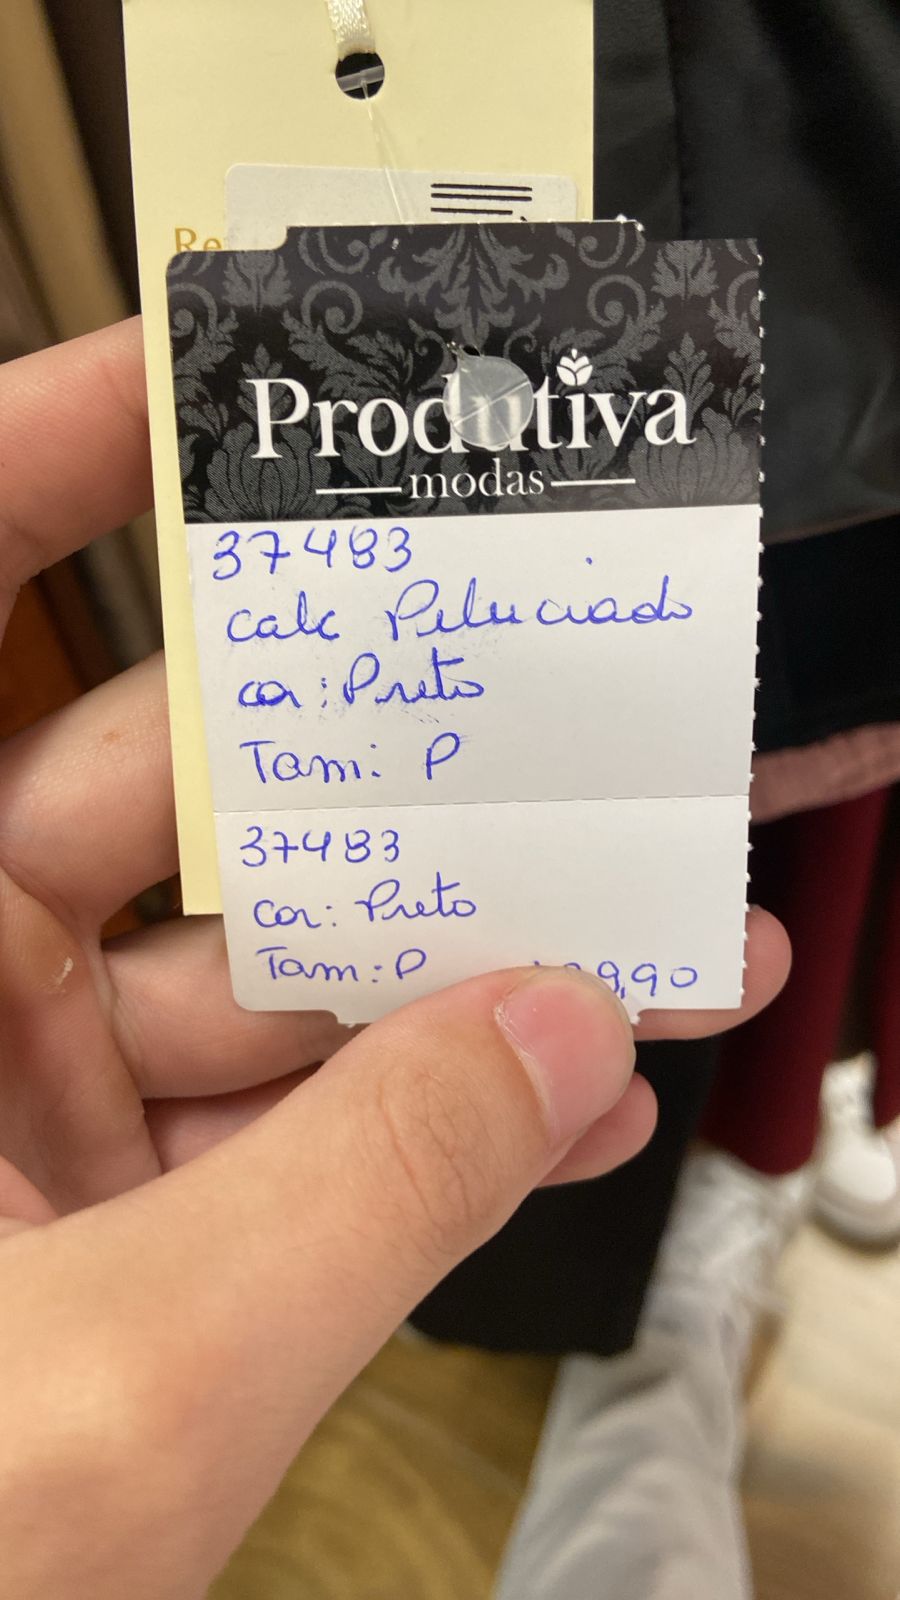 Re
Produtiva
modas
37483
calc Peluciado
cor: Preto
Tam: P
37483
cor: Preto
Tam: P 9,90